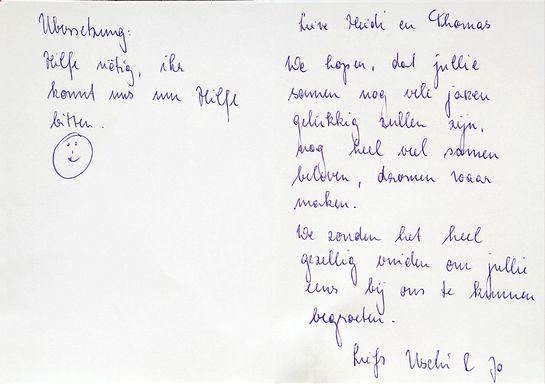 Übersetzung:
Hilfe nötig, ihr
könnt uns um Hilfe
bitten.
Lieve Heidi en Thomas
We hopen, dat jullie
samen nog vele jaren
gelukkig zullen zijn,
nog heel veel samen
beleven, dromen waar
maken.
We zouden het heel
gezellig vinden om jullie
eens bij ons te kunnen
begroeten.
Liefs Uschi & Jo